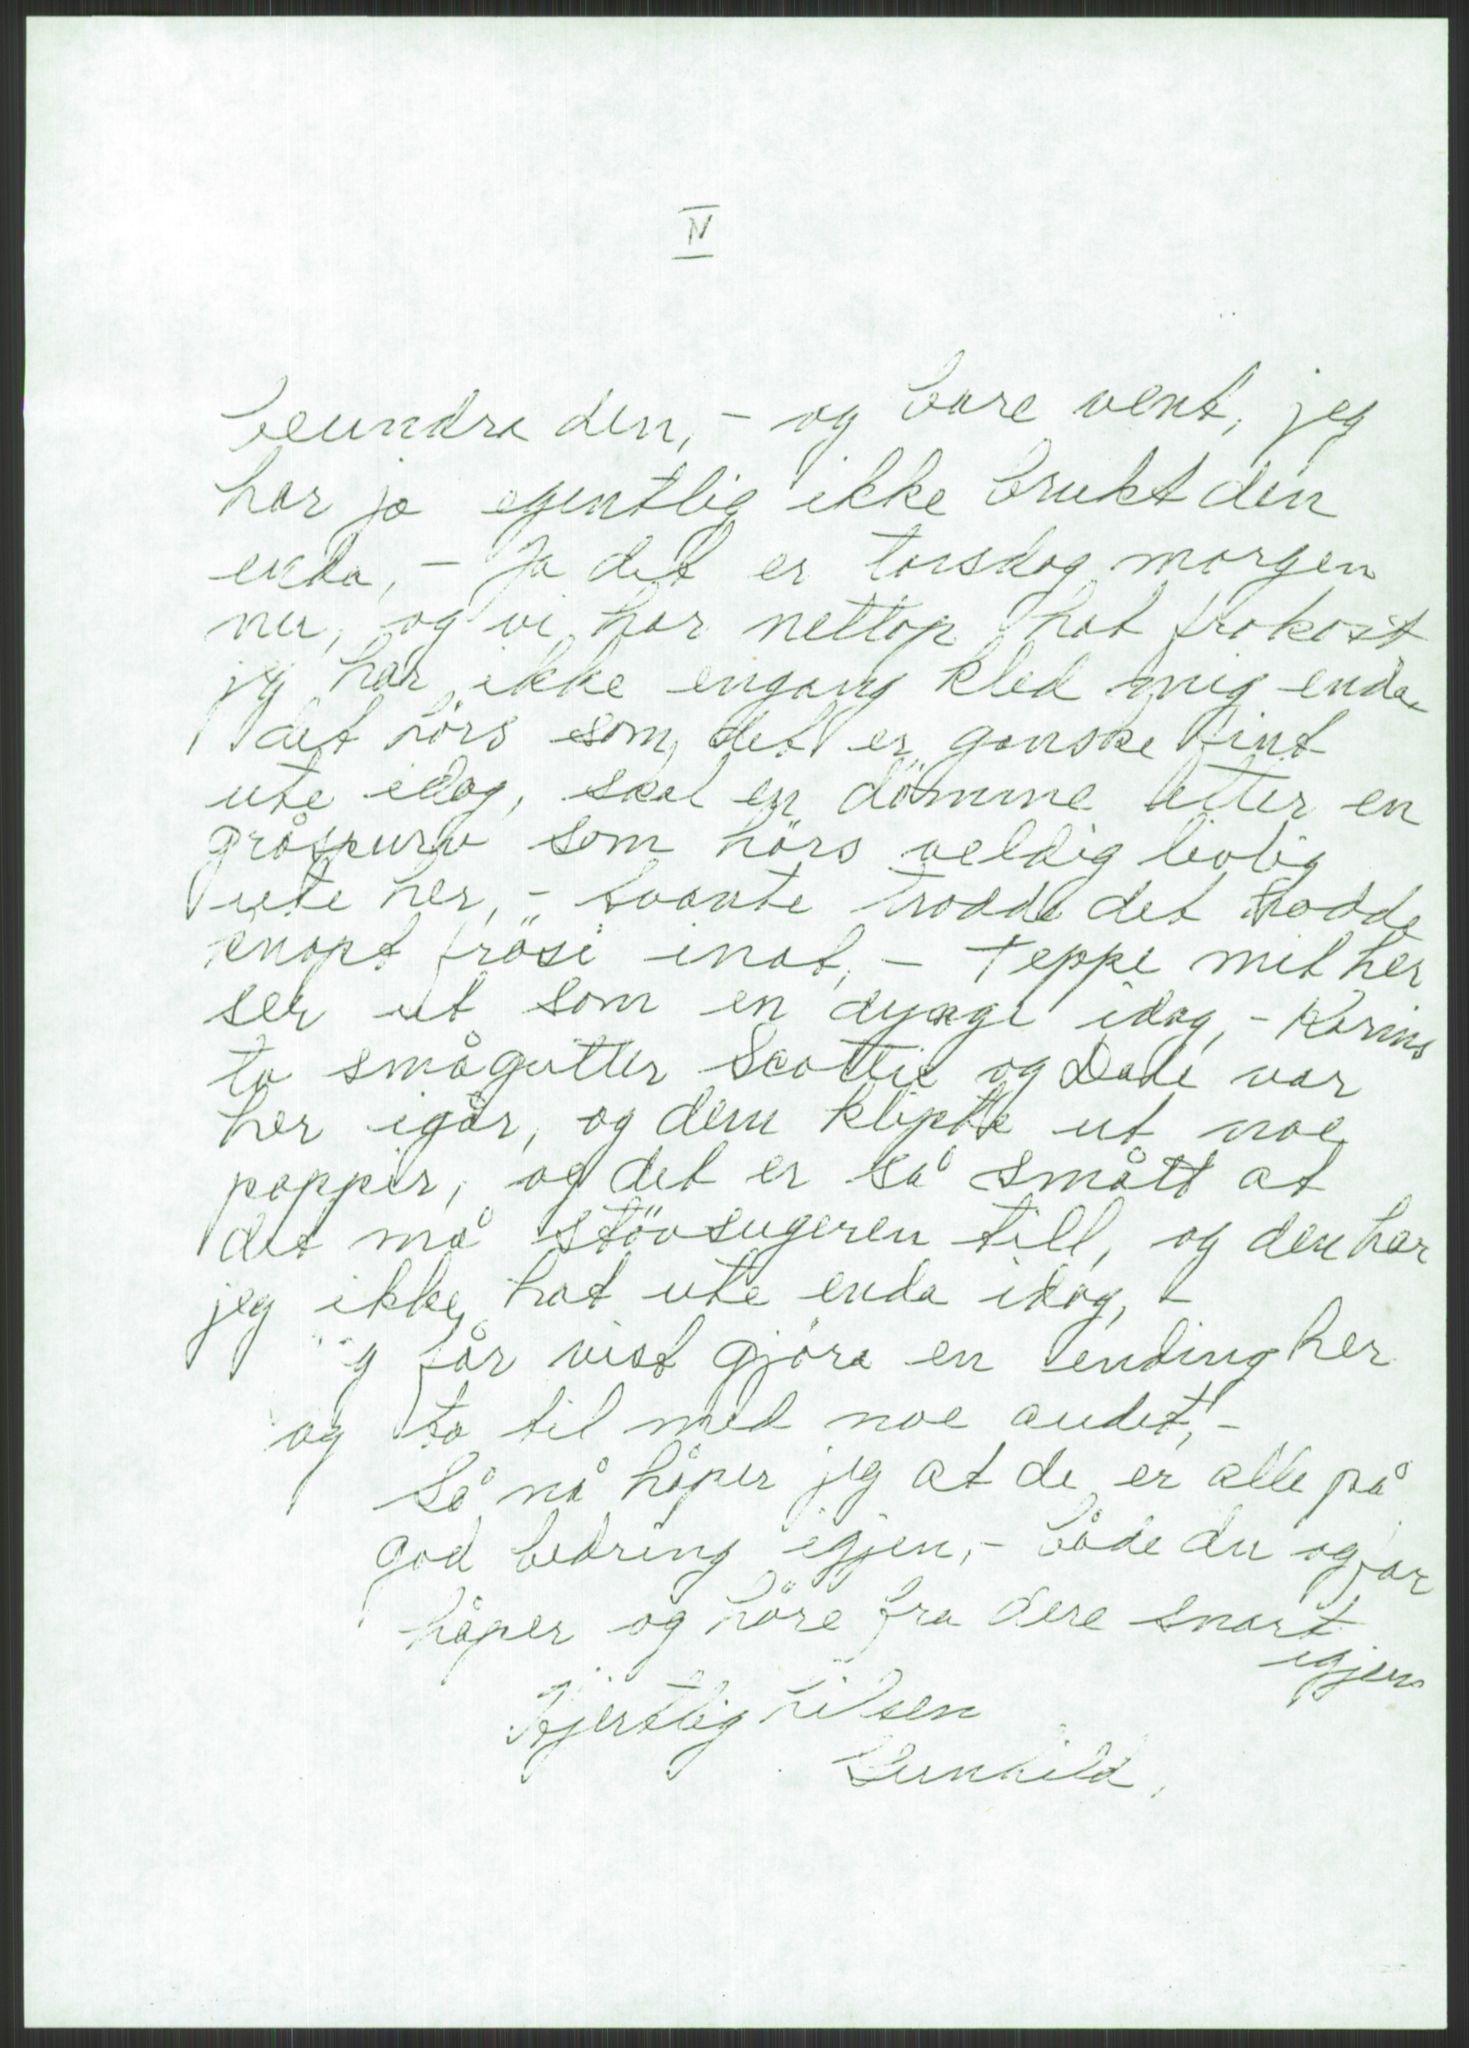 IV
beundra den, - og bare vent, jeg
har jo egentlig ikke brukt den
enda, - Ja det er torsdag morgen
nu, og vi har nettop hat frokost
jeg har ikke engang kled mig enda
det hörs som det er ganske fint
ute idag, skal en dömme etter en
gråspurv som hörs veldig livlig
ute her, - trodde det hadde
knapt frösi inat, - Teppe mit her
ser ut som en dynge idag, - Karins
to smågutter Scottie og Dale var
her igår, og dem klipte ut noe
pappir, og det er så smått at
det må stövsugeren till, og den har
jeg ikke hat ute enda idag, -
får vist gjöra en ending her
og ta til med noe andet, -
Så nå håper jeg at de er alle på
god bedring igjen, - både du og far
håper og höre fra dere snart
igjen
Hjertlig hilsen
Gunhild.